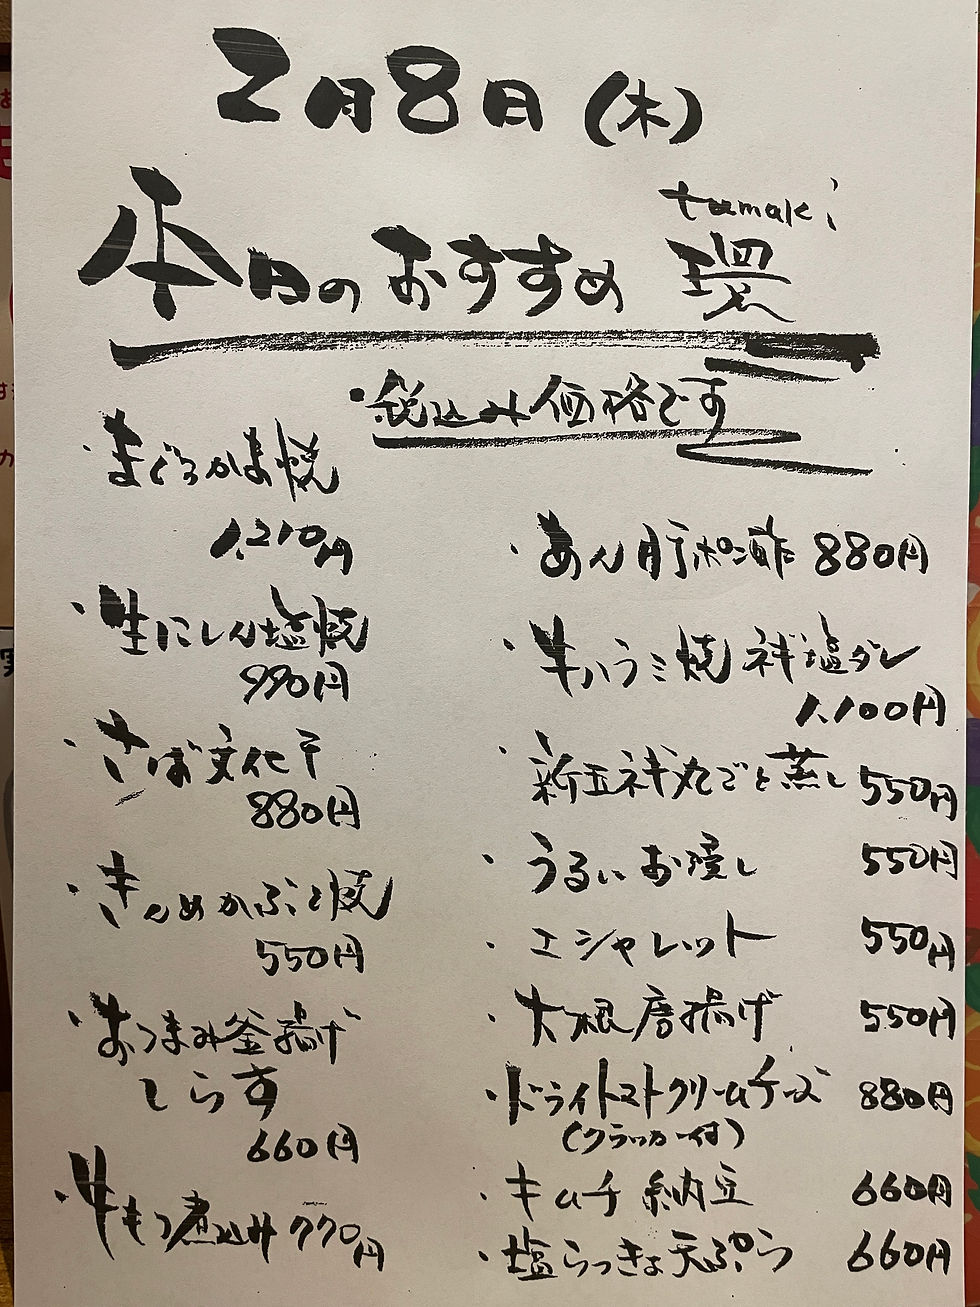 2月8日(木)
tamaki
本日のおすすめ 環
・税込み価格です
・まぐろかま焼
1,210円
・生にしん塩焼
990円
・さば文化干
880円
・きんめかぶと焼
550円
・おつまみ釜揚げ
しらす
660円
・牛もつ煮込み 770円
・あん肝ポン酢 880円
・牛ハラミ焼 ネギ塩ダレ
1,100円
・新玉ネギ丸ごと蒸し 550円
・うるいお浸し 550円
・エシャレット 550円
・大根唐揚げ 550円
・ドライトマトクリームチーズ 880円
(クラッカー付)
・キムチ納豆 660円
・塩らっきょ天ぷら 660円